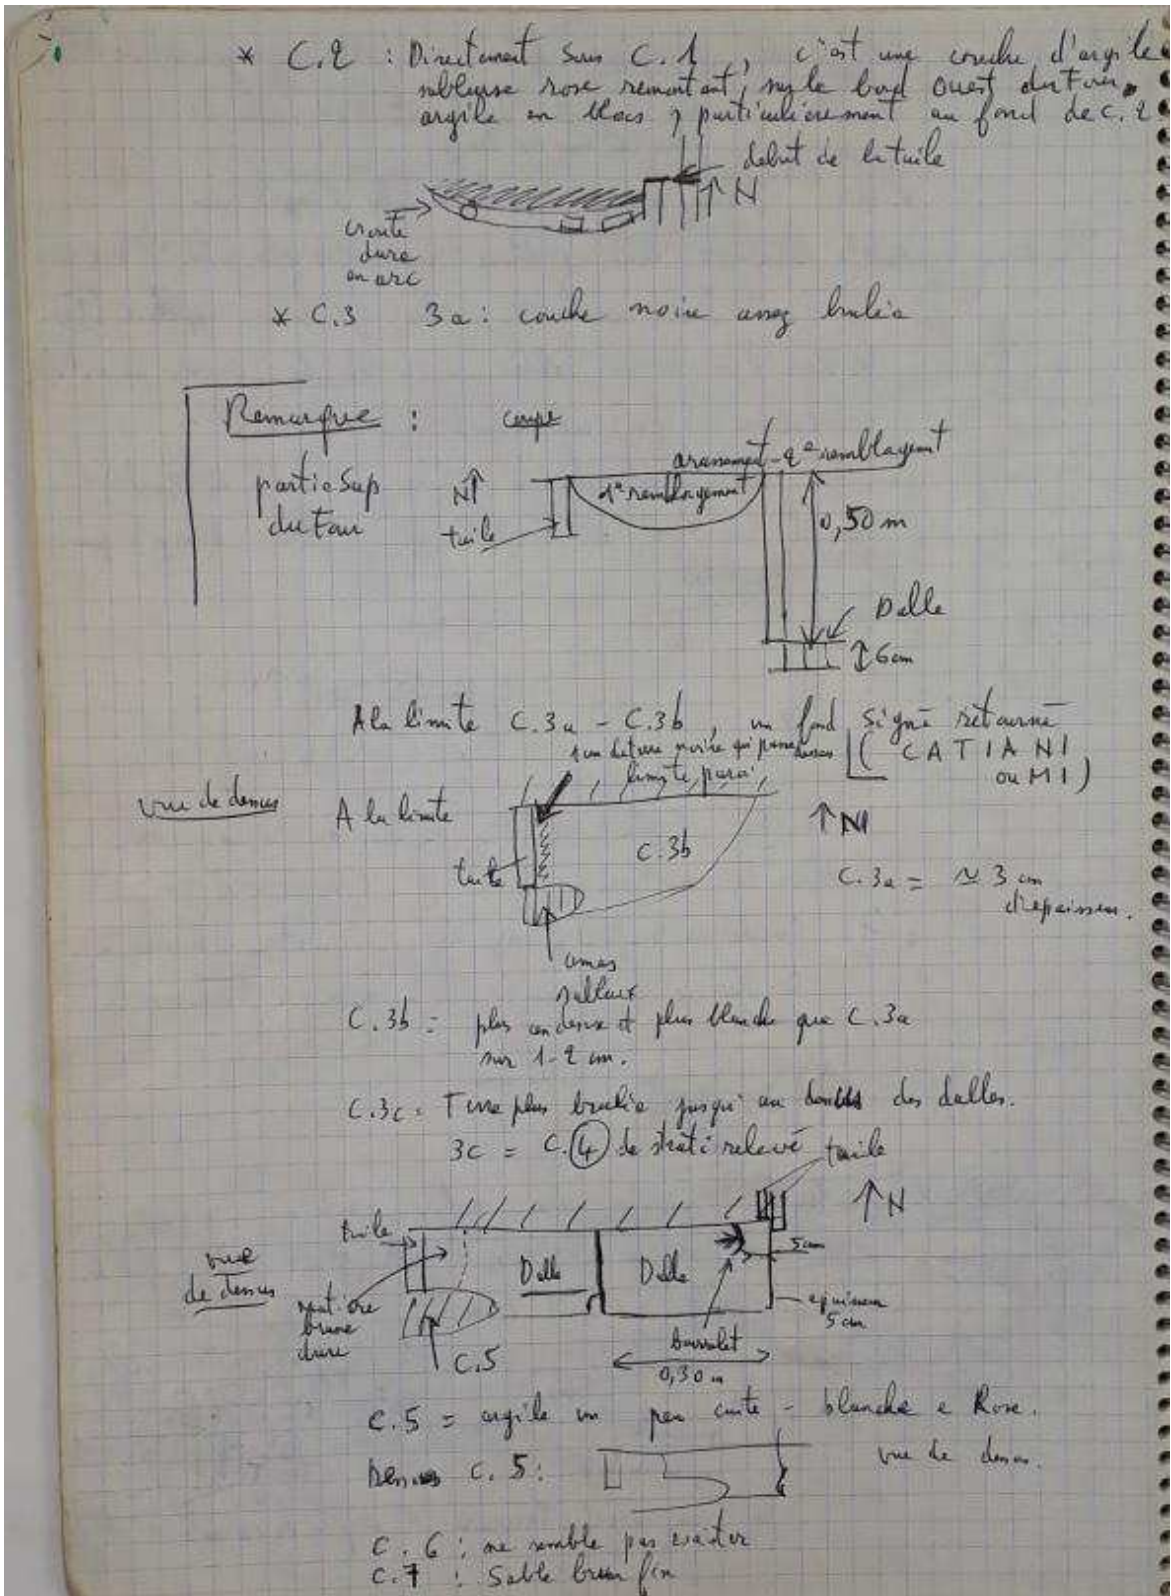 * C.2 : Directement sous C.1, c'est une couche d'argile
sableuse rose remontant, sur le bord ouest du Four,
argile en blocs, particulièrement au fond de C.2
début de la tuile
N
croute
dure
en arc
* C.3 3a : couche noire assez brulée
Remarque : coupe
partie Sup
du Four
N
tuile
arasement - 2e remblayement
1e remblayement
0,50 m
Dalle
6 cm
A la limite C.3a - C.3b, un fond signé retourné
( CATIANI
ou MI )
limite paroi
vue de dessus
A la limite
N
C.3b
tuile
C.3a = ≃ 3 cm
d'épaisseur.
amas
sableux
C.3b = plus et plus blanche que C.3a
sur 1-2 cm.
C.3c = Terre plus brulée jusqu'au dessus des dalles.
3c = C.(4) de strati relevé
tuile
N
tuile
vue
de dessus
Dalle
Dalle
5 cm
matière
brune
dure
épaisseur
5 cm
C.5
bourrelet
0,30 m
C.5 = argile un peu cuite - blanche e Rose.
Dessous C.5 :
vue de dessus.
C.6 : ne semble pas exister
C.7 : Sable brun fin